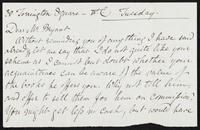 30 Torrington Square – W.C. Tuesday.
Dear Mr Bryant
Without reminding you of anything I have said
already let me say that I do not quite like your
scheme as I cannot but doubt whether your
acquaintance can be aware of the value of
the books he offers you. Why not tell him,
and offer to sell them for him on commission?
You might get less in cash, but would have